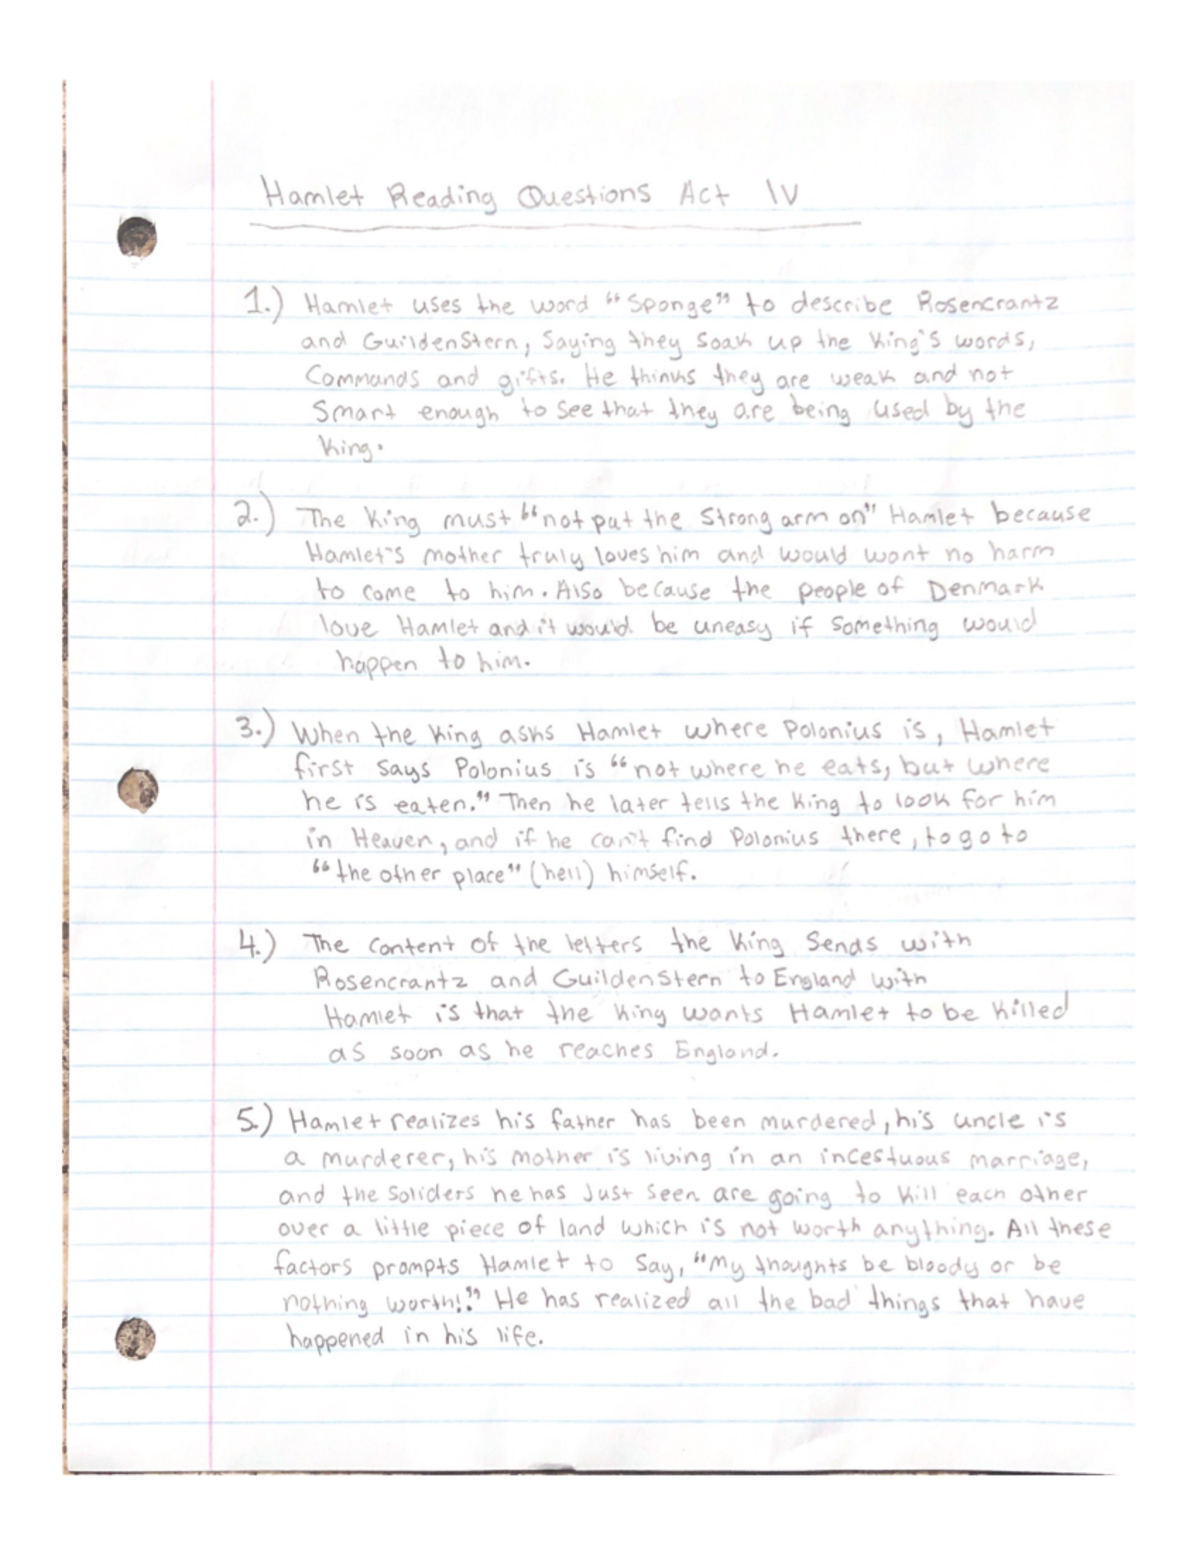 Hamlet Reading Questions Act IV
1.) Hamlet uses the word "Sponge" to describe Rosencrantz
and Guildenstern, Saying they soak up the King's words,
Commands and gifts. He thinks they are weak and not
Smart enough to see that they are being used by the
King.
2.) The King must "not put the Strong arm on" Hamlet because
Hamlet's mother truly loves him and would want no harm
to come to him. Also because the people of Denmark
love Hamlet and it would be uneasy if something would
happen to him.
3.) When the King asks Hamlet where Polonius is, Hamlet
first says Polonius is "not where he eats, but where
he is eaten." Then he later tells the King to look for him
in Heaven, and if he can't find Polonius there, to go to
"the other place" (hell) himself.
4.) The content of the letters the King Sends with
Rosencrantz and Guildenstern to England with
Hamlet is that the King wants Hamlet to be killed
as soon as he reaches England.
5.) Hamlet realizes his father has been murdered, his uncle is
a murderer, his mother is living in an incestuous marriage,
and the soliders he has just seen are going to kill each other
over a little piece of land which is not worth anything. All these
factors prompts Hamlet to say, "My thoughts be bloody or be
nothing worth!" He has realized all the bad things that have
happened in his life.